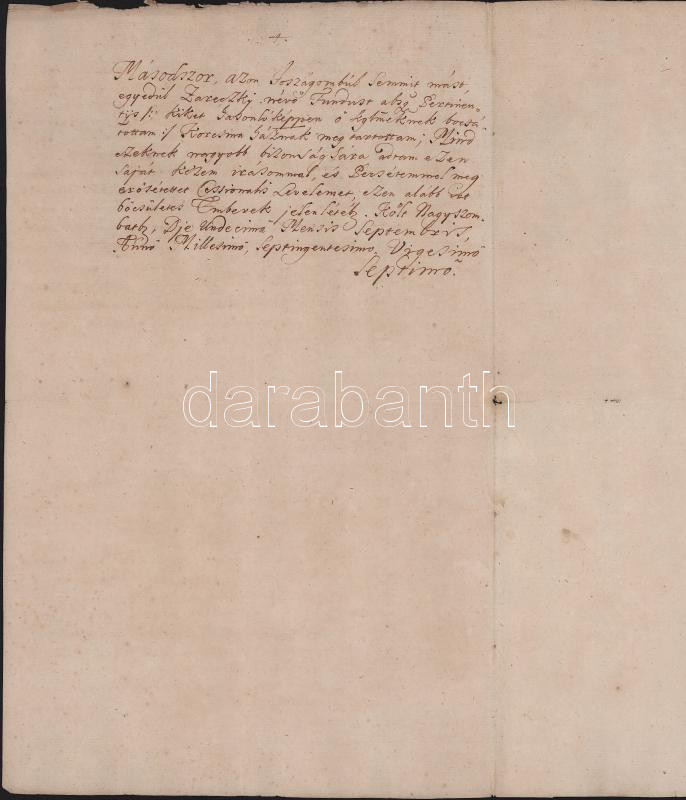 4.
Másodszor, azon Joszágombúl Semmit mást,
egyedül Zareczky névő Fundust
tijs /: kiket hasonlóképpen ő kglmeknek bocsá,
tottam :/ Korcsma háznak meg tartottam; Mind
ezeknek nagyobb bizonságára adtam ezen
saját kezem irasommal, és Pecsétemmel meg
erősétettet Cessionalis Levelemet, ezen alább irt
böcsületes Emberek jelenlétéb. Költ Nagyszom
batb, Die Undecima Mensis Septembris,
Anno Millesimo, Septingentesimo, Vigesimo
Septimo.
darabanth